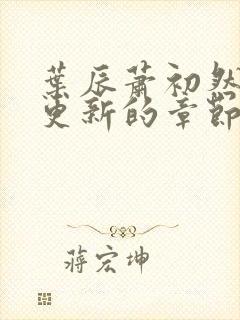 葉辰蕭初然
更新的章節
蔣宏坤